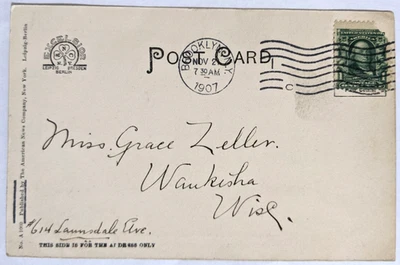 EXCELSIOR
LEIPZIG DRESDEN
BERLIN
POST CARD
BROOKLYN, N.Y.
NOV 2
7 30 AM
1907
C
Miss. Grace Zeller.
Waukisha
Wisc.
#614 Lawnsdale Ave.
THIS SIDE IS FOR THE ADDRESS ONLY
Published by The American News Company, New York. Leipzig-Berlin